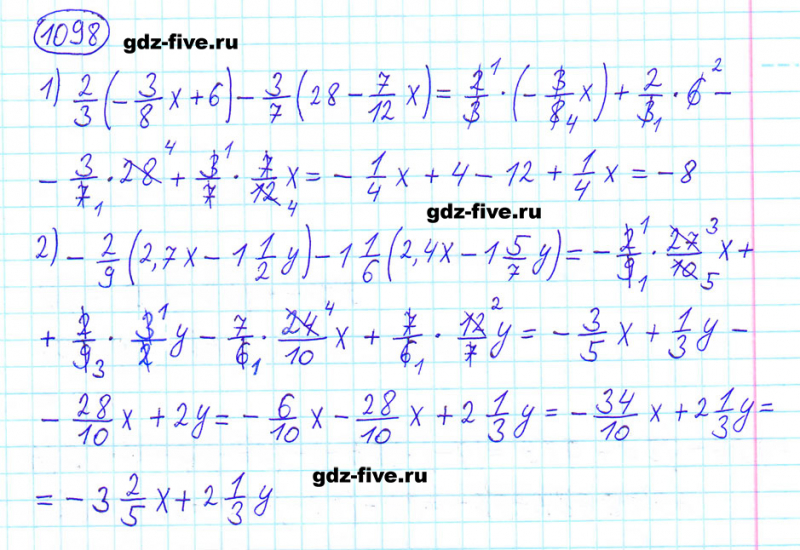 1098 gdz-five.ru
1) 2/3(-3/8x+6)-3/7(28-7/12x)=2/3¹·(-3/8₄x)+2/3₁·6²-
-3/7₁·28⁴+3/7¹·7/12₄x=-1/4x+4-12+1/4x=-8
gdz-five.ru
2) -2/9(2,7x-1 1/2y)-1 1/6(2,4x-1 5/7y)=-2¹/9₁·27³/10₅x+
+2/9₃·3¹/2y-7/6₁·24⁴/10x+7/6₁·12²/7y=-3/5x+1/3y-
-28/10x+2y=-6/10x-28/10x+2 1/3y=-34/10x+2 1/3y=
gdz-five.ru
=-3 2/5x+2 1/3y